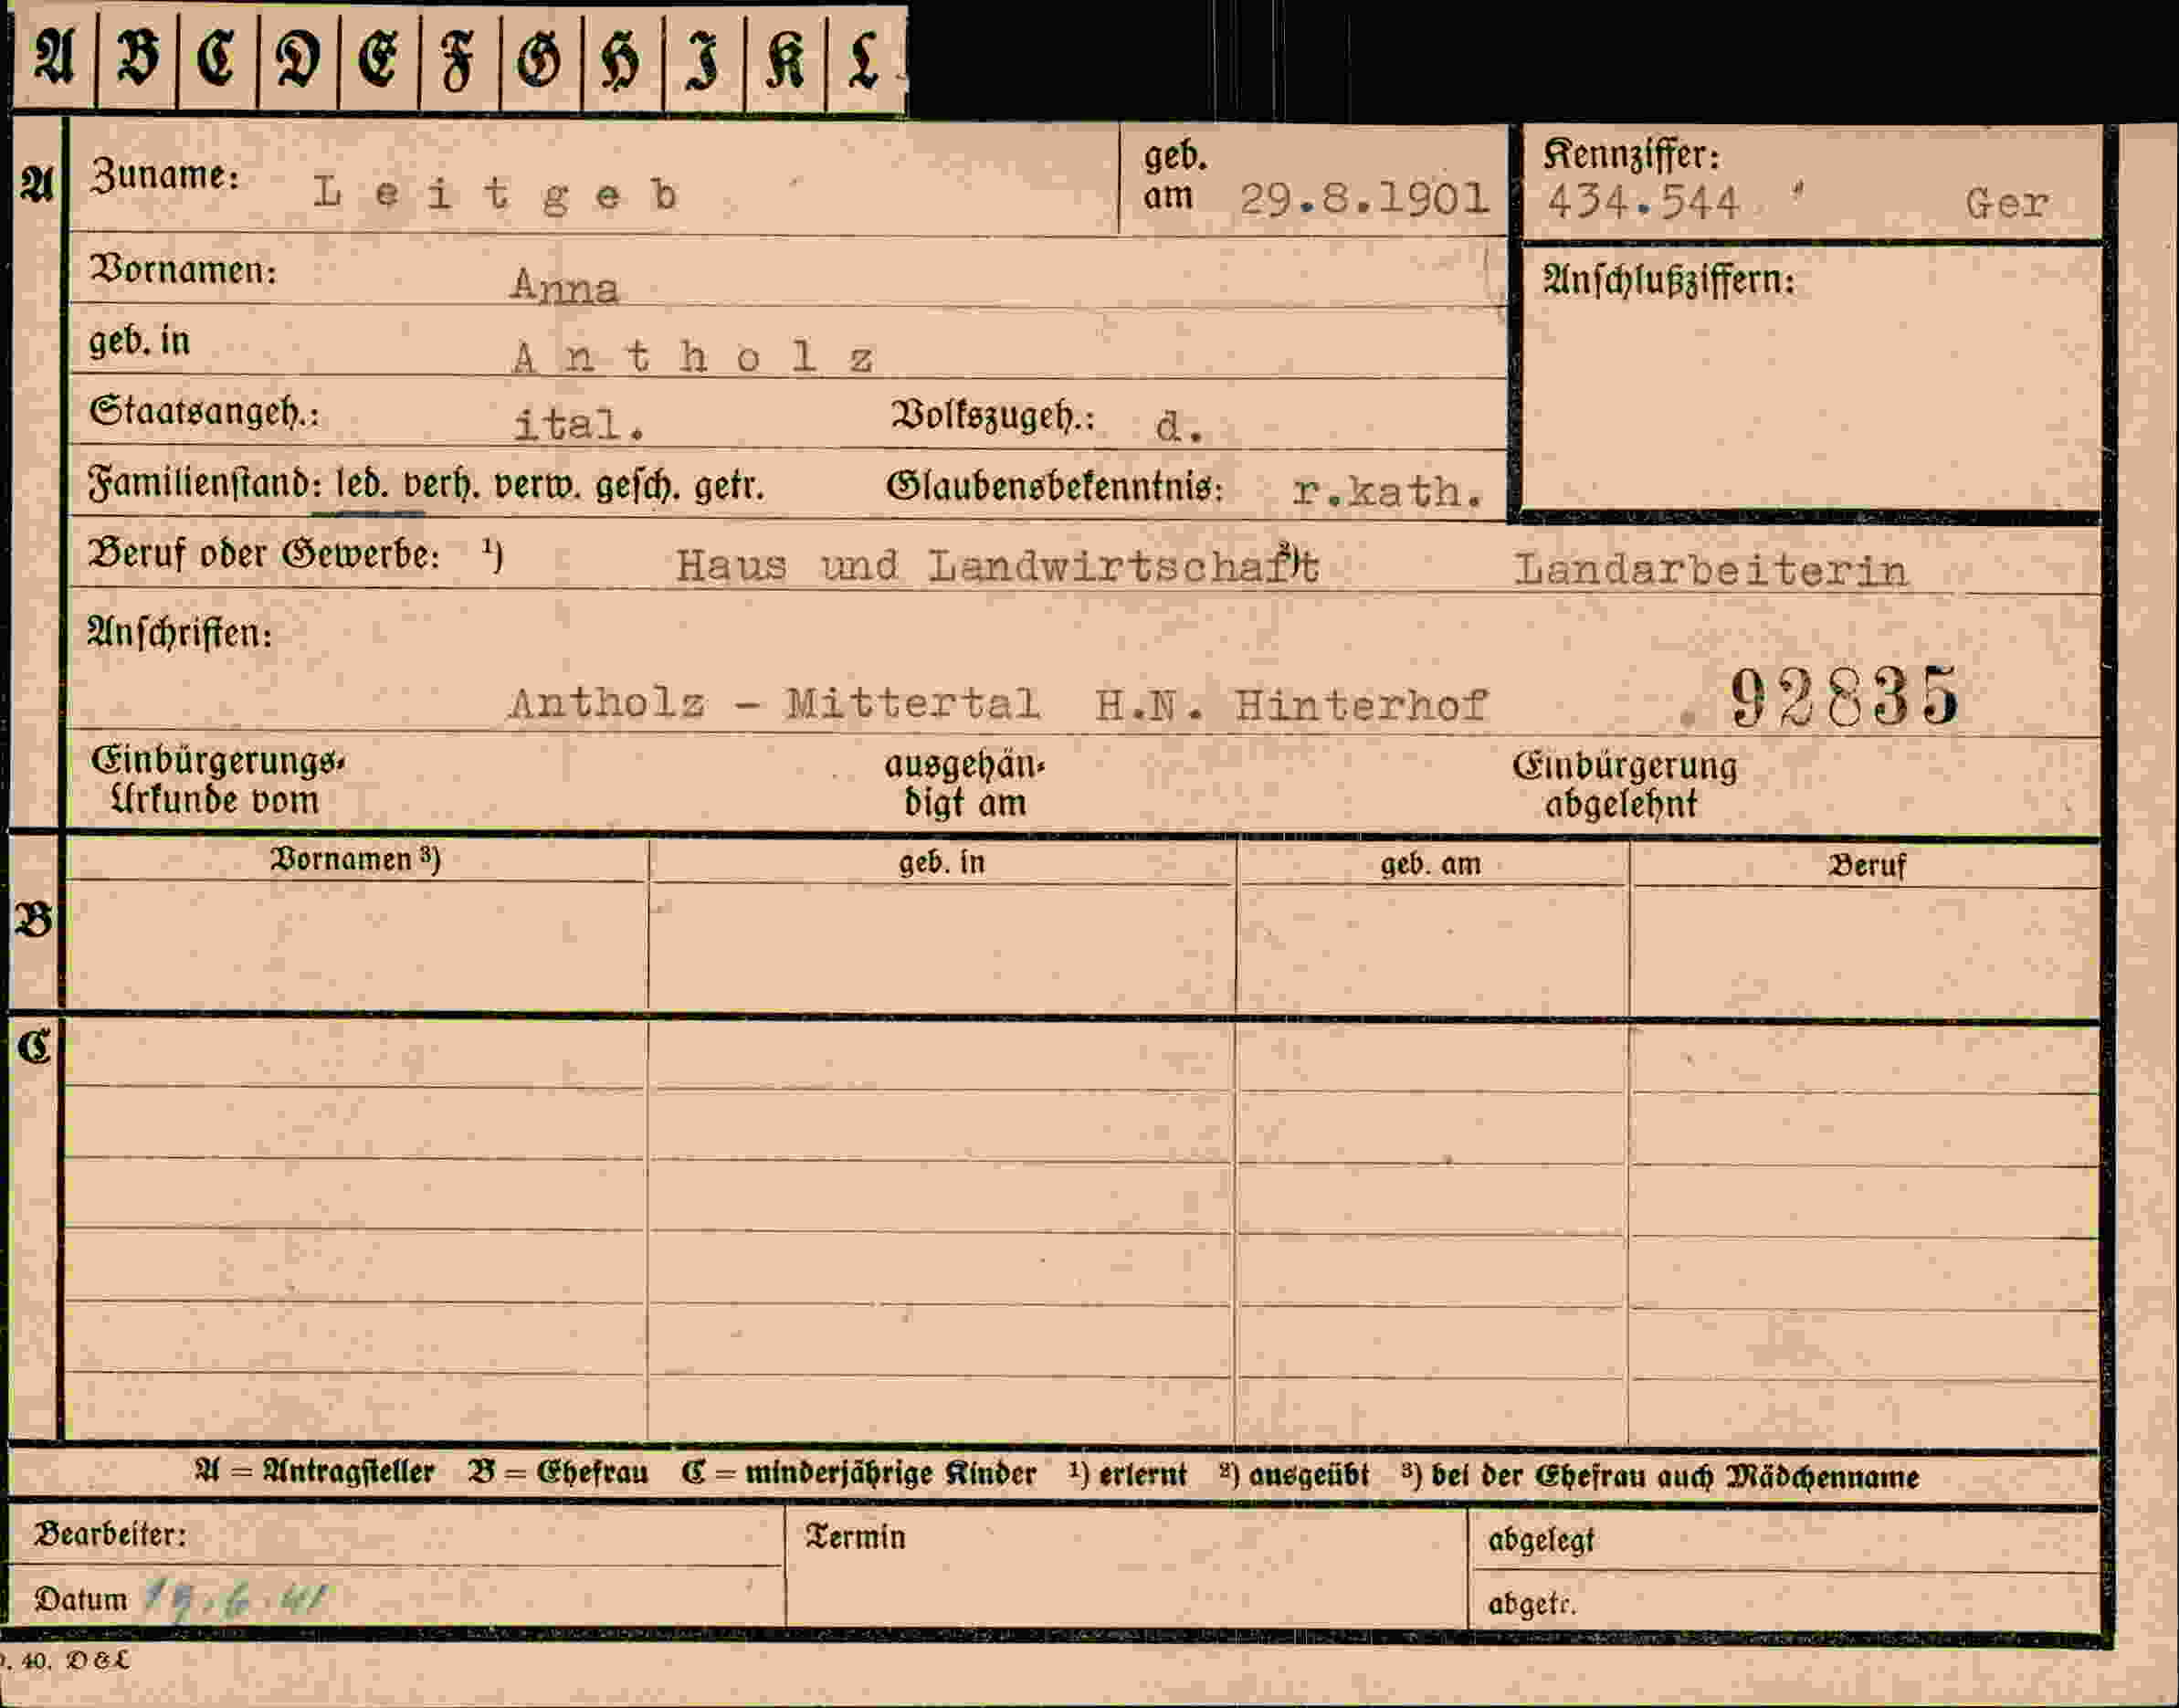 A B C D E F G H I K L
A Zuname: Leitgeb geb. am 29.8.1901 Kennziffer: 434.544 Ger
Vornamen: Anna Anschlußziffern:
geb. in Antholz
Staatsangeh.: ital. Volkszugeh.: d.
Familienstand: led. verh. verw. gesch. getr. Glaubensbekenntnis: r.kath.
Beruf oder Gewerbe: ¹) Haus und Landwirtschaft ²) Landarbeiterin
Anschriften:
Antholz - Mittertal H.N. Hinterhof 92835
Einbürgerungs- ausgehän- Einbürgerung
Urkunde vom digt am abgelehnt
Vornamen ³) geb. in geb. am Beruf
B
C
A = Antragsteller B = Ehefrau C = minderjährige Kinder ¹) erlernt ²) ausgeübt ³) bei der Ehefrau auch Mädchenname
Bearbeiter: Termin abgelegt
Datum 19.6.41 abgetr.
40. D&L